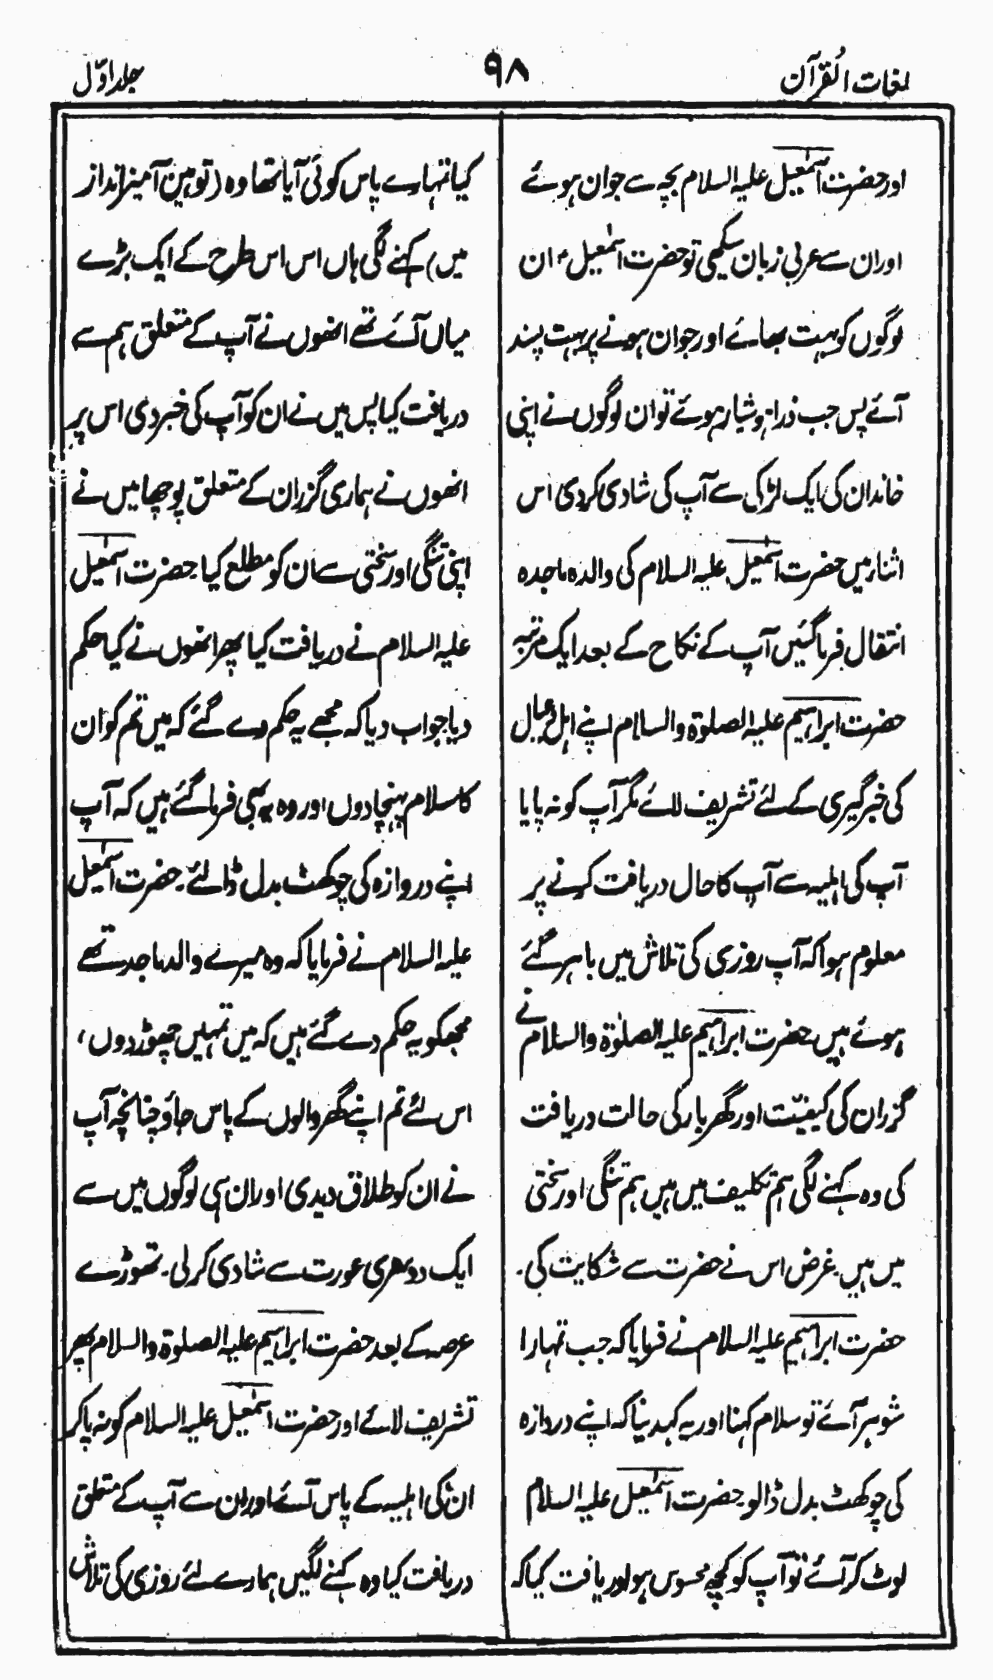 لغات القرآن
۹۸
جلد اوّل
اور حضرت اسمٰعیل علیہ السلام بچہ سے جوان ہوئے
اور ان سے عربی زبان سیکھی تو حضرت اسمٰعیلؑ ان
لوگوں کو بہت بھائے اور جوان ہونے پر بہت پسند
آئے پس جب ذرا ہوشیار ہوئے تو ان لوگوں نے اپنی
خاندان کی ایک لڑکی سے آپ کی شادی کردی اس
اثنار میں حضرت اسمٰعیل علیہ السلام کی والدہ ماجدہ
انتقال فرماگئیں آپ کے نکاح کے بعد ایک مرتبہ
حضرت ابراہیم علیہ الصلوۃ والسلام اپنے اہل و عیال
کی خبر گیری کے لئے تشریف لائے مگر آپ کو نہ پایا
آپ کی اہلیہ سے آپ کا حال دریافت کرنے پر
معلوم ہوا کہ آپ روزی کی تلاش میں باہر گئے
ہوئے ہیں۔ حضرت ابراہیم علیہ الصلوٰۃ والسلام نے
گزران کی کیفیت اور گھر بار کی حالت دریافت
کی وہ کہنے لگی ہم تکلیف میں ہیں ہم تنگی اور سختی
میں ہیں۔ غرض اس نے حضرت سے شکایت کی۔
حضرت ابراہیم علیہ السلام نے فرمایا کہ جب تمہارا
شوہر آئے تو سلام کہنا اور یہ کہدینا کہ اپنے دروازہ
کی چوکھٹ بدل ڈالو۔ حضرت اسمٰعیل علیہ السلام
لوٹ کر آئے تو آپ کو کچھ محسوس ہوا دریافت کیا کہ
کیا تمہارے پاس کوئی آیا تھا وہ (توہین آمیز انداز
میں) کہنے لگی ہاں اس اس طرح کے ایک بڑے
میاں آئے تھے انھوں نے آپ کے متعلق ہم سے
دریافت کیا پس میں نے ان کو آپ کی خبر دی اس پر
انھوں نے ہماری گزران کے متعلق پوچھا میں نے
اپنی تنگی اور سختی سے ان کو مطلع کیا۔ حضرت اسمٰعیل
علیہ السلام نے دریافت کیا پھر انھوں نے کیا حکم
دیا جواب دیا کہ مجھے یہ حکم دے گئے کہ میں تم کو ان
کا سلام پہنچا دوں اور وہ یہ بھی فرما گئے ہیں کہ آپ
اپنے دروازہ کی چوکھٹ بدل ڈالئے۔ حضرت اسمٰعیل
علیہ السلام نے فرمایا کہ وہ میرے والد ماجد تھے
مجھکو یہ حکم دے گئے ہیں کہ میں تمہیں چھوڑ دوں،
اس لئے تم اپنے گھر والوں کے پاس جاؤ چنانچہ آپ
نے ان کو طلاق دیدی اور ان ہی لوگوں میں سے
ایک دوسری عورت سے شادی کرلی۔ تھوڑے
عرصہ کے بعد حضرت ابراہیم علیہ الصلوۃ والسلام پھر
تشریف لائے اور حضرت اسمٰعیل علیہ السلام کو نہ پاکر
ان کی اہلیہ کے پاس آئے اور ان سے آپ کے متعلق
دریافت کیا وہ کہنے لگیں ہمارے لئے روزی کی تلاش